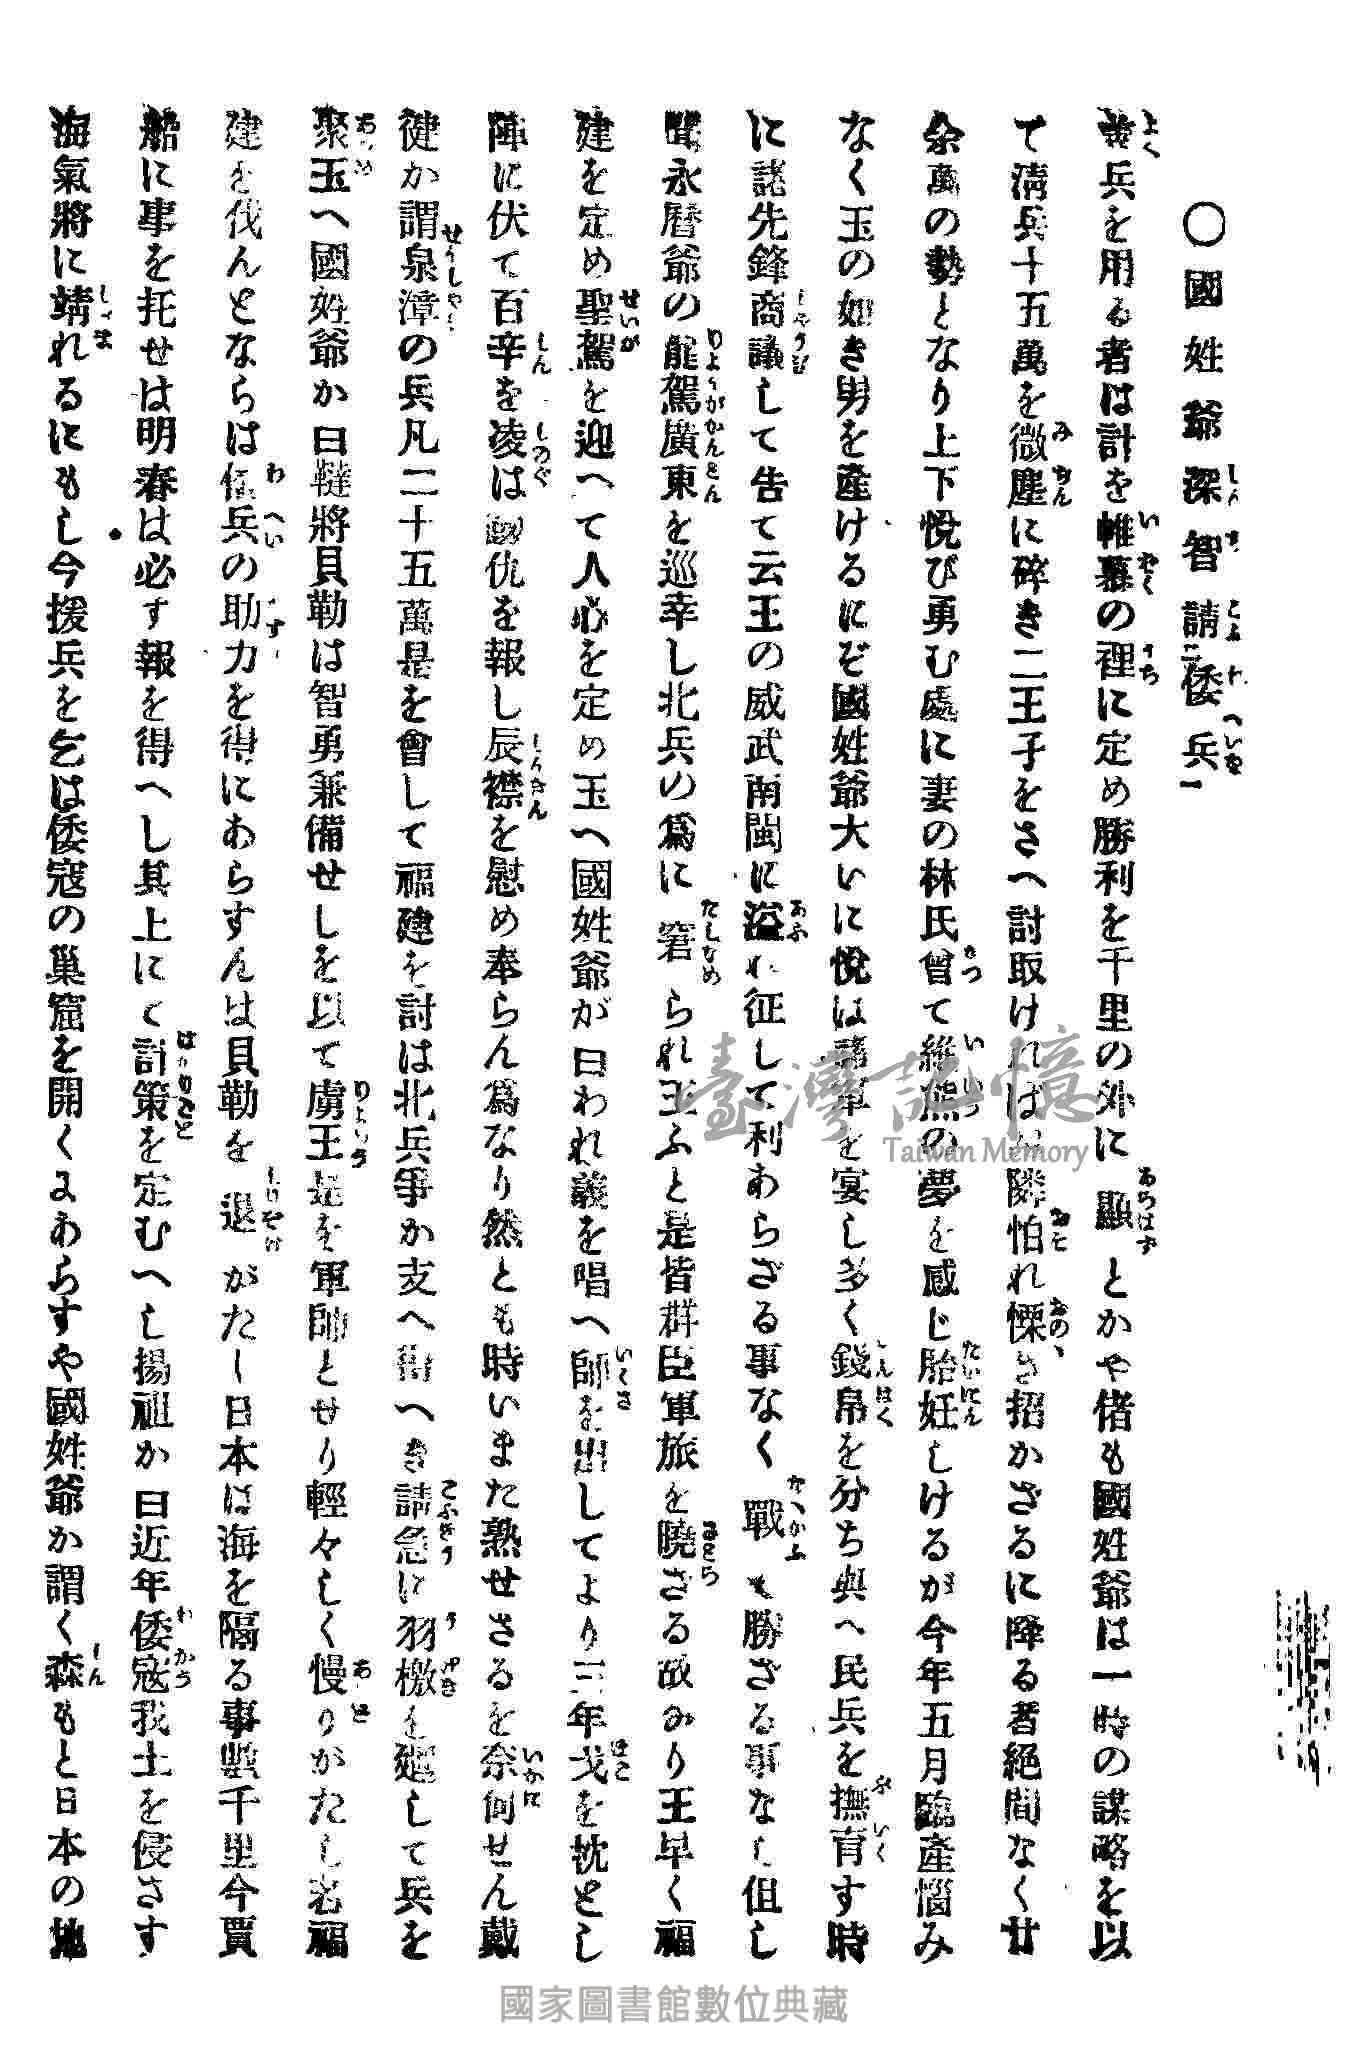 〇國姓爺深智請二倭兵一
兵を用る者は計を帷幕の裡に定め勝利を千里の外に顯とかや偖も國姓爺は一時の謀略を以
て淸兵十五萬を微塵に碎き二王子をさへ討取ければ隣怕れ慄き招かざるに降る者絕間なく廿
余萬の勢となり上下悅び勇む處に妻の林氏曾て維熊の夢を感じ胎妊しけるが今年五月臨產惱み
なく玉の如き男を產けるにぞ國姓爺大いに悅は諸軍を宴し多く錢帛を分ち與へ民兵を撫育す時
に諸先鋒商議して告て云王の威武南閩に溢れ征して利あらざる事なく戰て勝ざる事なし但し
永曆爺の龍駕廣東を巡幸し北兵の爲に窘られ玉ふと是皆群臣軍旅を曉ざる故なり王早く福
建を定め聖駕を迎へて人心を定め玉へ國姓爺が曰われ義を唱へ師を出してより三年戈を枕とし
陣に伏て百辛を凌は國仇を報し辰襟を慰め奉らん爲なり然とも時いまた熟せさるを奈何せん戴
健か謂泉漳の兵凡二十五萬是を會して福建を討は北兵爭か支へ衛へき請急に羽檄を廻して兵を
聚玉へ國姓爺か曰韃將貝勒は智勇兼備せしを以て虜王是を軍師とせり輕々しく慢りがたし若福
建を伐んとならは倭兵の助力を得にあらすんは貝勒を退がたし日本は海を隔る事數千里今賈
船に事を托せは明春は必す報を得へし其上にて計策を定むへし揚祖か曰近年倭寇我土を侵さす
海氣將に靖れるにもし今援兵を乞は倭寇の巢窟を開くにあらすや國姓爺か謂く森もと日本の地
臺灣記憶
Taiwan Memory
國家圖書館數位典藏